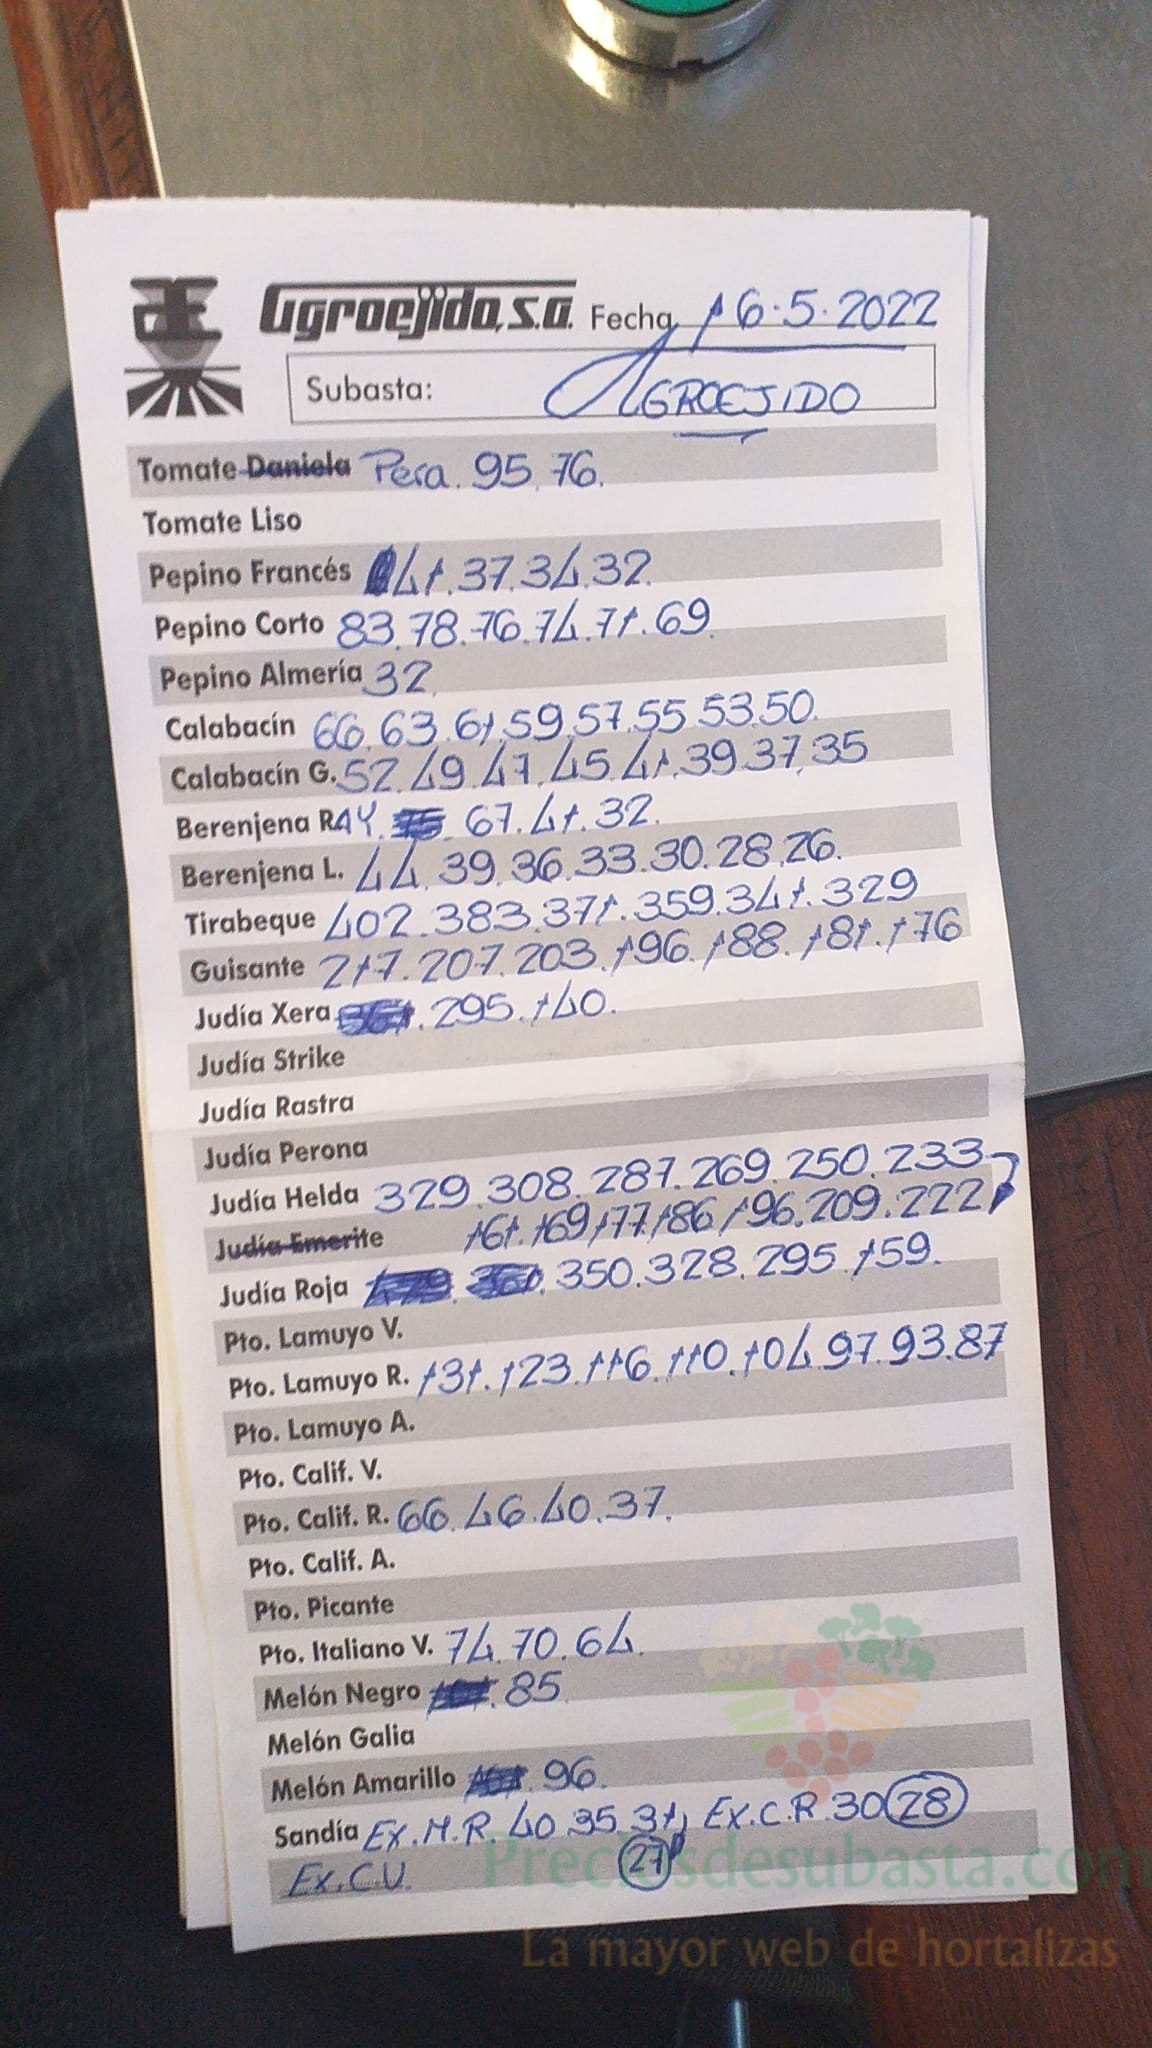 Agroejido, s.a. Fecha 16.5.2022
Subasta: AGROEJIDO
Tomate Daniela Pera. 95.76.
Tomate Liso
Pepino Francés 41.37.34.32.
Pepino Corto 83.78.76.74.71.69.
Pepino Almería 32
Calabacín 66.63.61.59.57.55.53.50.
Calabacín G. 52.49.47.45.41.39.37.35
Berenjena RAY. 67.41.32.
Berenjena L. 44.39.36.33.30.28.26.
Tirabeque 402.383.371.359.341.329
Guisante 217.207.203.196.188.181.176
Judía Xera 295.140.
Judía Strike
Judía Rastra
Judía Perona
Judía Helda 329.308.287.269.250.233
Judía Emerite 161.169.177.186.196.209.222
Judía Roja 350.328.295.159.
Pto. Lamuyo V.
Pto. Lamuyo R. 131.123.116.110.104.97.93.87
Pto. Lamuyo A.
Pto. Calif. V.
Pto. Calif. R. 66.46.40.37.
Pto. Calif. A.
Pto. Picante
Pto. Italiano V. 74.70.64.
Melón Negro 85.
Melón Galia
Melón Amarillo 96.
Sandía Ex.M.R. 40.35.31, Ex.C.R. 30 28
Ex.C.U. 27
Preciosdesubasta.com
La mayor web de hortalizas